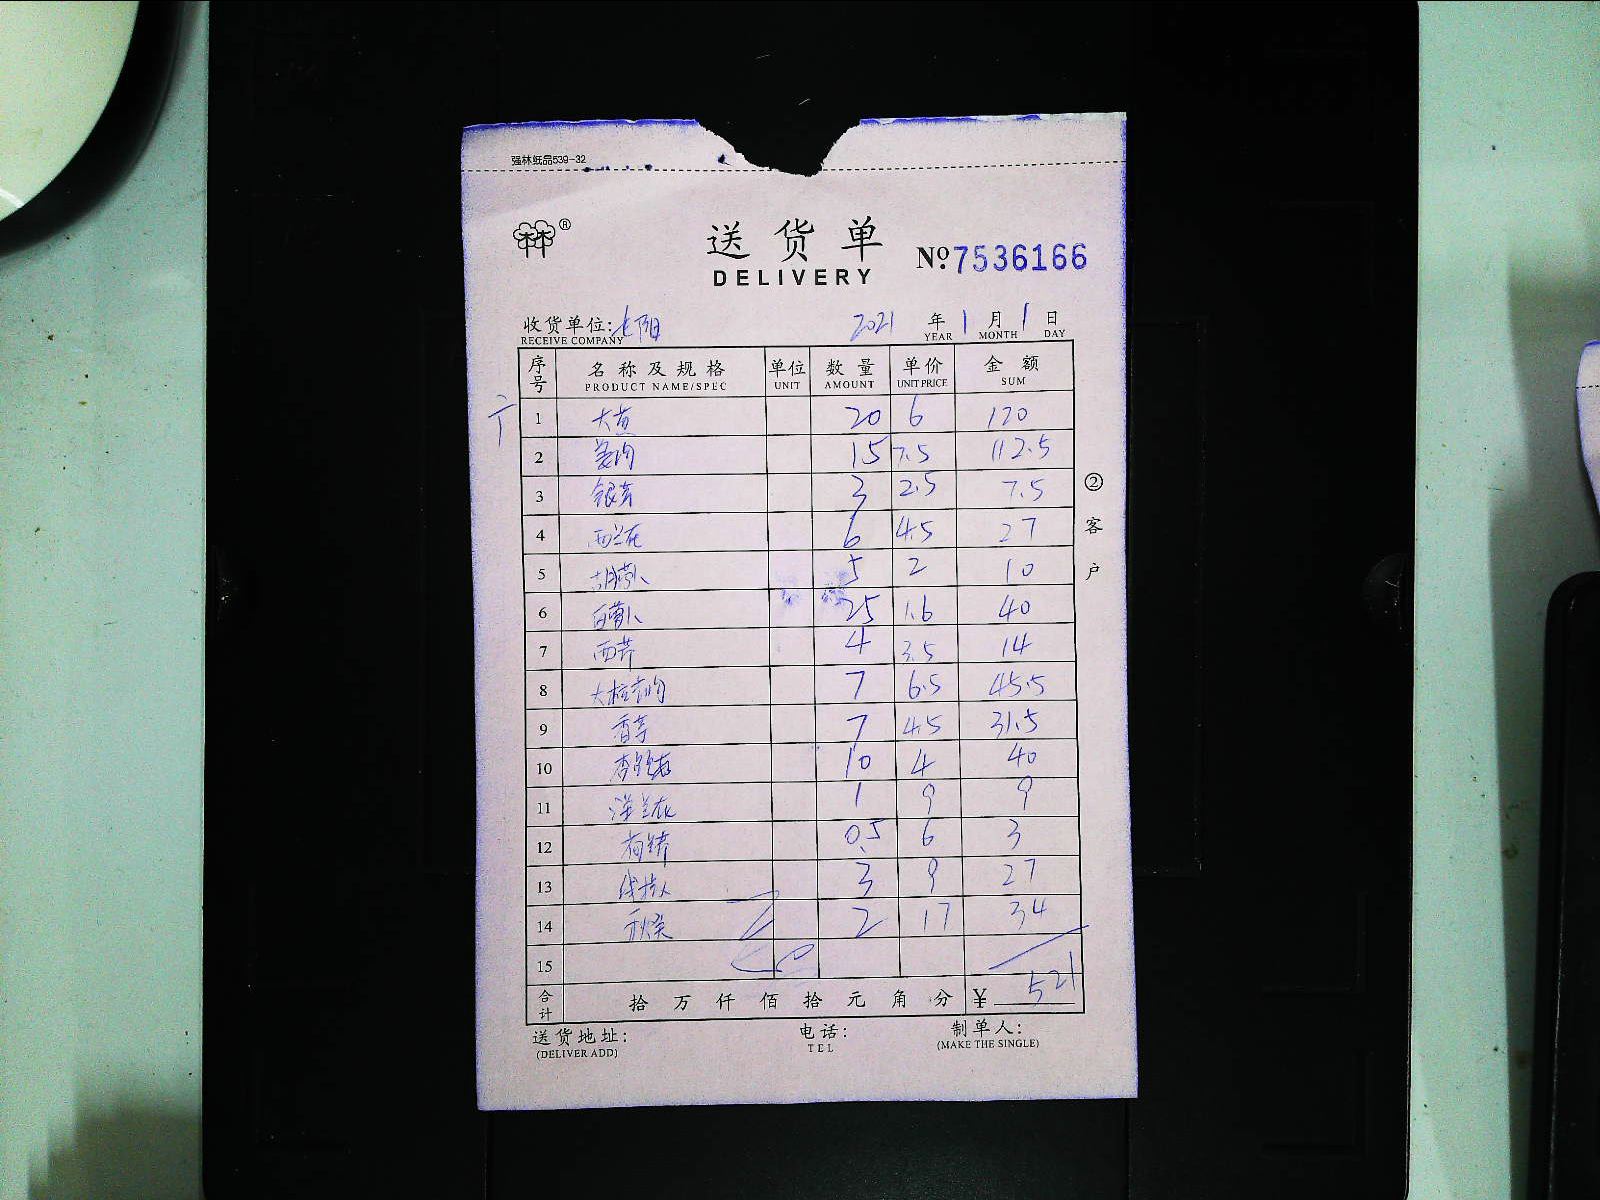 强林纸品539-32
®
送货单
DELIVERY
Nº 7536166
收货单位: 阳 2021 年 1 月 1 日
RECEIVE COMPANY YEAR MONTH DAY
序号 名称及规格 单位 数量 单价 金额
PRODUCT NAME/SPEC UNIT AMOUNT UNIT PRICE SUM
1 大葱 20 6 120
2 姜肉 15 7.5 112.5
3 银芽 3 2.5 7.5
4 西兰花 6 4.5 27
5 胡萝卜 5 2 10
6 白萝卜 25 1.6 40
7 西芹 4 3.5 14
8 7 6.5 45.5
9 香芋 7 4.5 31.5
10 10 4 40
11 1 9 9
12 0.5 6 3
13 3 9 27
14 2 17 34
15
合计 拾万仟佰拾元角分 ¥ 521
送货地址: 电话: 制单人:
(DELIVER ADD) TEL (MAKE THE SINGLE)
②客户